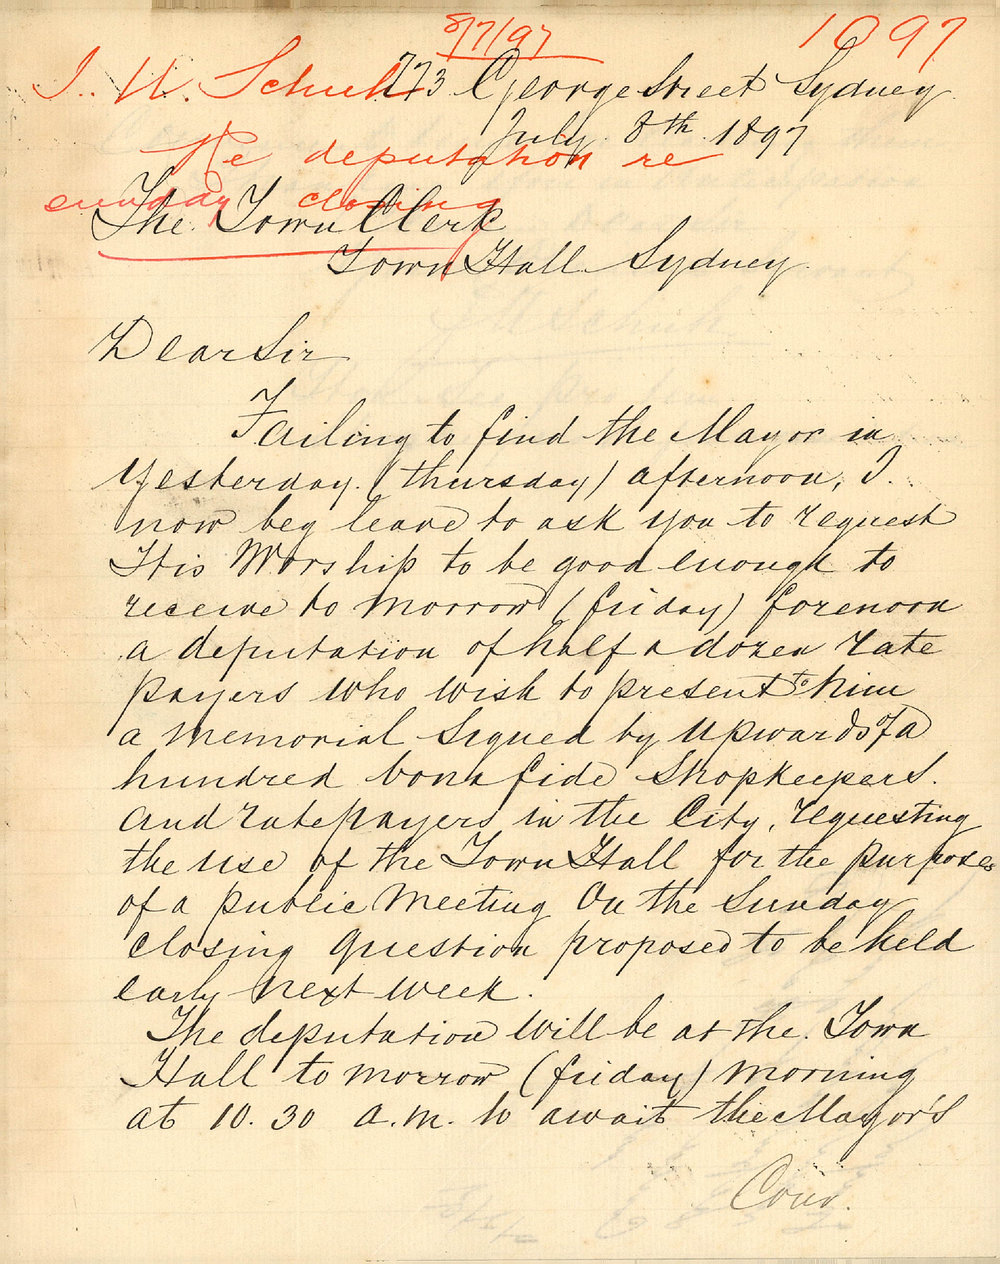 8/7/97
1097
J. W. Schuh
773 George Street Sydney
July 8th 1897
Re deputation re
sunday closing
The Town Clerk
Town Hall Sydney
Dear Sir
Failing to find the Mayor in
yesterday (thursday) afternoon, I
now beg leave to ask you to request
His Worship to be good enough to
receive to morrow (friday) forenoon
a deputation of half a dozen rate
payers who wish to present to him
a memorial signed by upwards of a
hundred bona fide shopkeepers.
and ratepayers in the City, requesting
the use of the Town Hall for the purposes
of a public Meeting On the Sunday
closing question proposed to be held
early next week.
The deputation will be at the Town
Hall to morrow (friday) morning
at 10.30 a.m. to await the Mayor's
Conv.